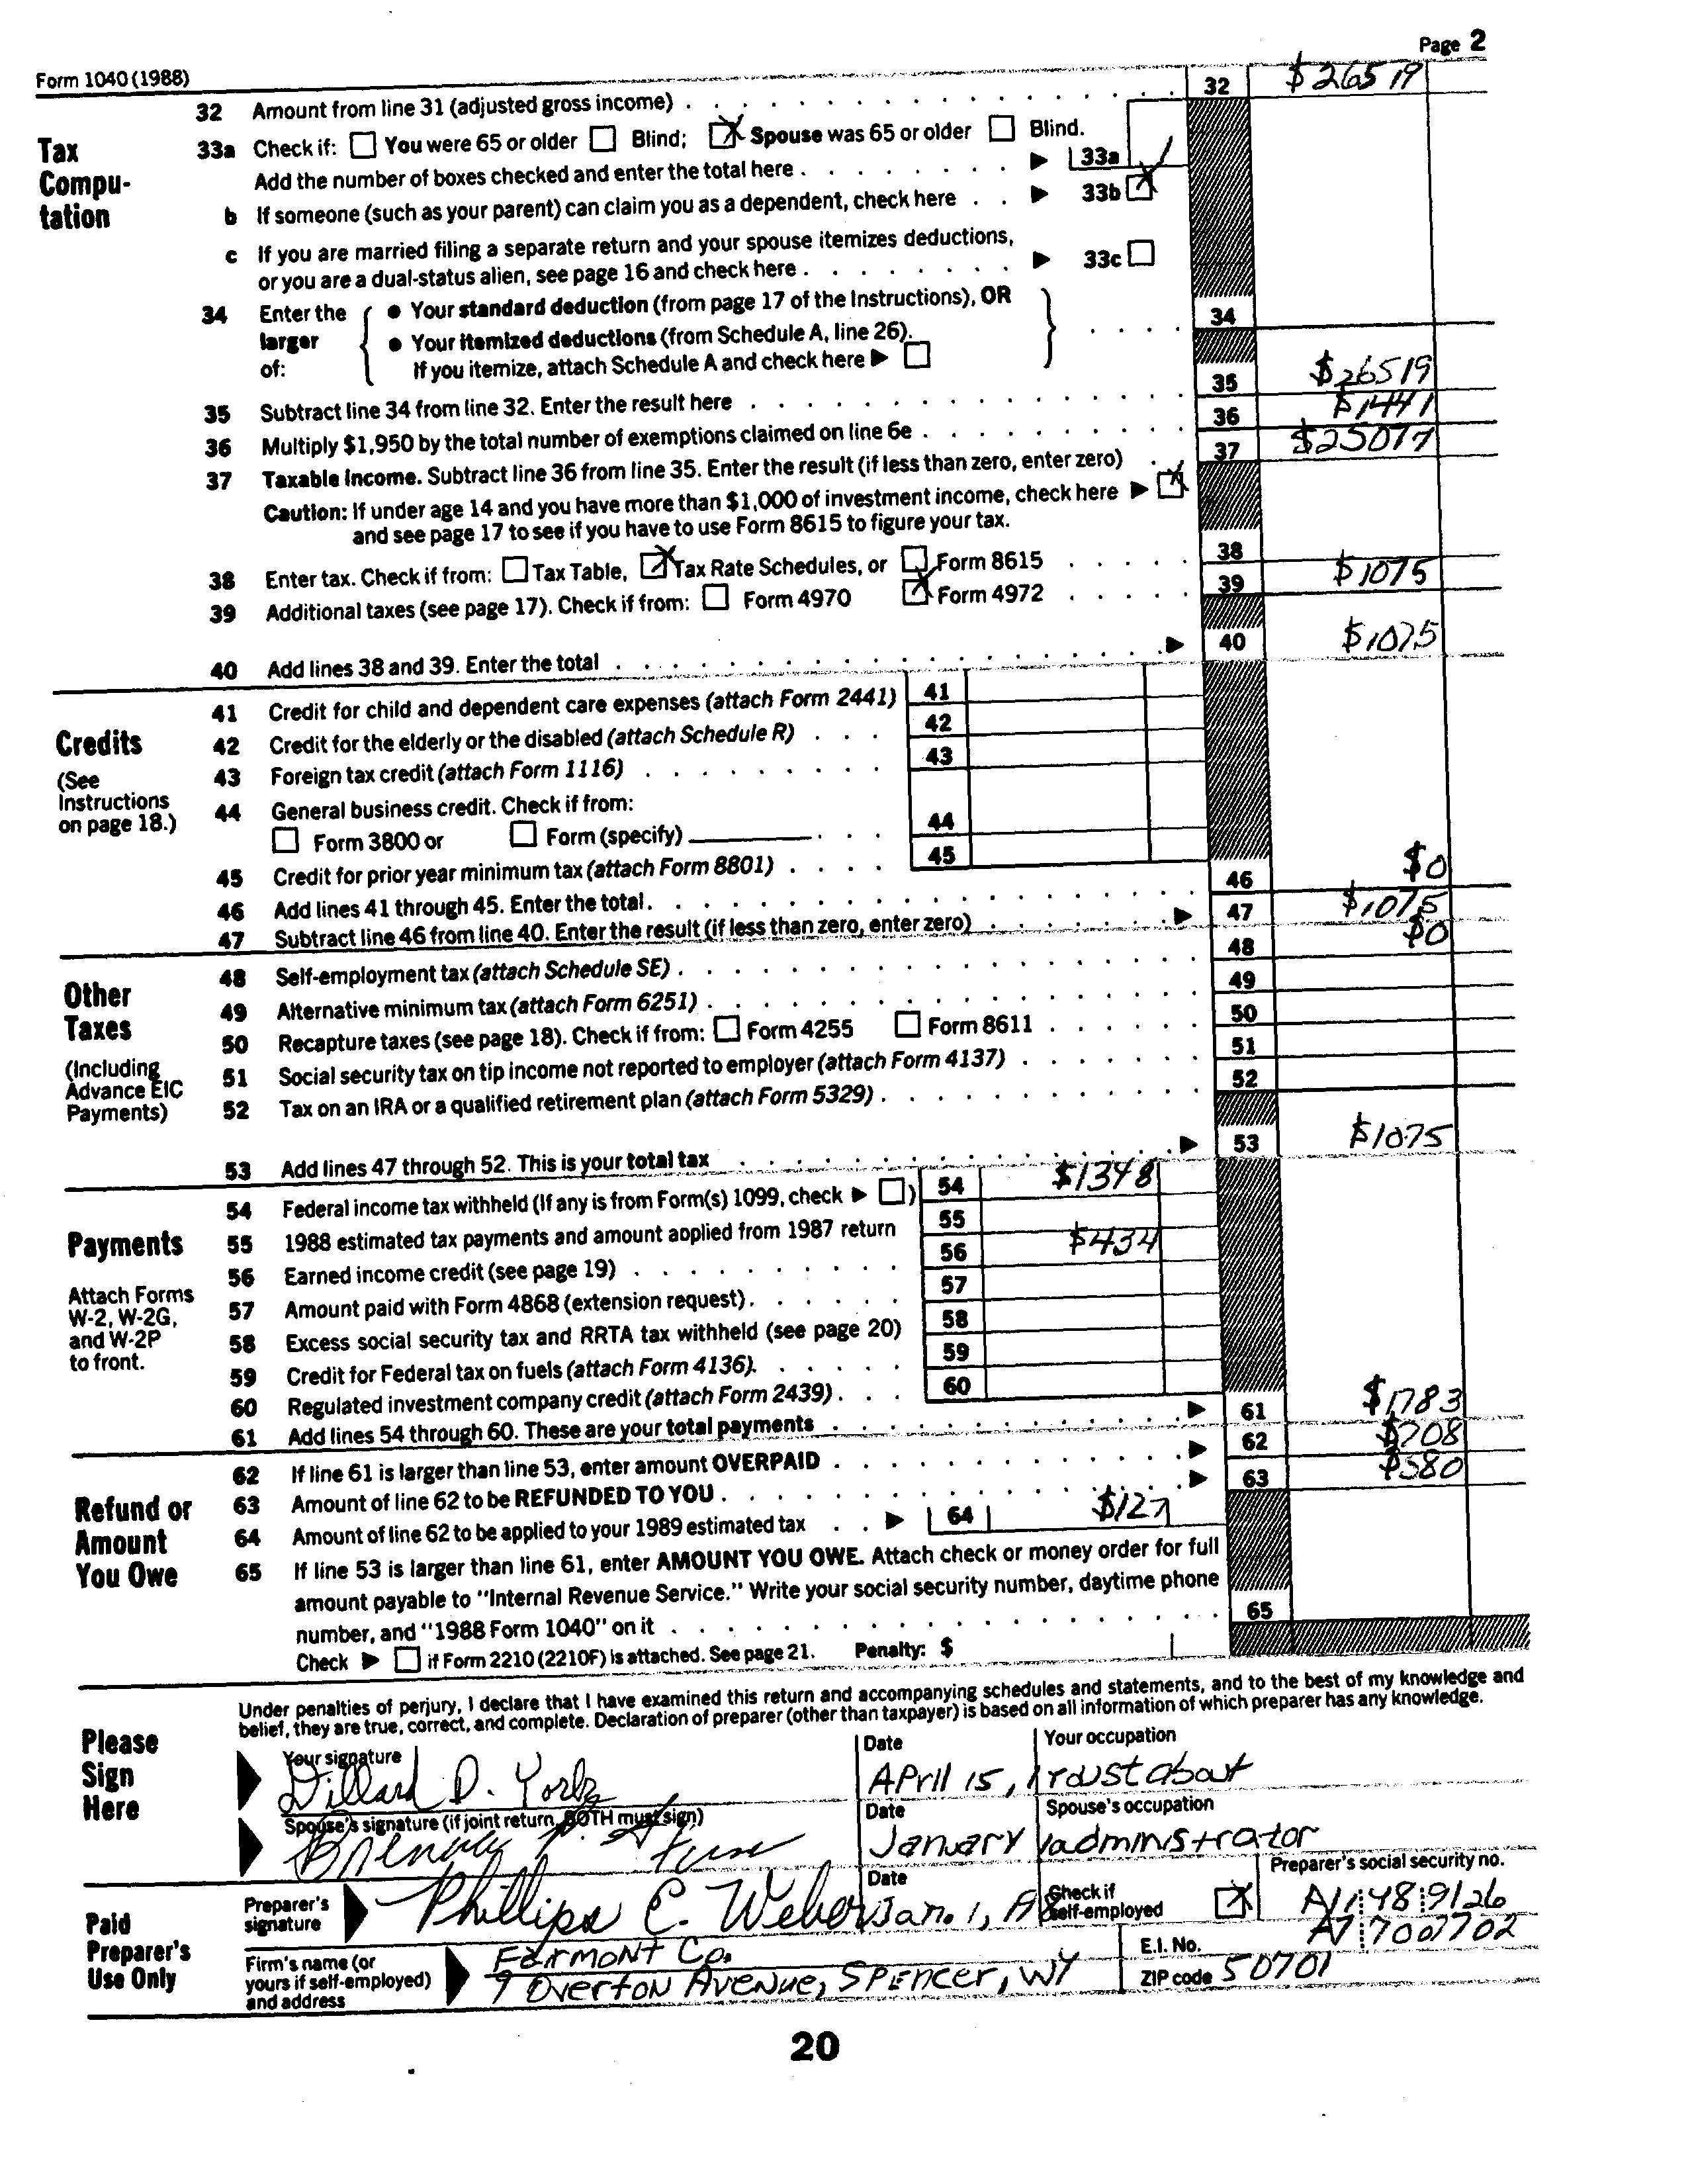 Form 1040 (1988) Page 2
Tax Compu-tation
32 Amount from line 31 (adjusted gross income) 32 $26519
33a Check if: You were 65 or older Blind; X Spouse was 65 or older Blind.
Add the number of boxes checked and enter the total here 33a 1
b If someone (such as your parent) can claim you as a dependent, check here 33b X
c If you are married filing a separate return and your spouse itemizes deductions,
or you are a dual-status alien, see page 16 and check here 33c
34 Enter the larger of: { • Your standard deduction (from page 17 of the Instructions), OR
• Your itemized deductions (from Schedule A, line 26).
If you itemize, attach Schedule A and check here } 34
35 Subtract line 34 from line 32. Enter the result here 35 $26519
36 Multiply $1,950 by the total number of exemptions claimed on line 6e 36 $1441
37 Taxable income. Subtract line 36 from line 35. Enter the result (if less than zero, enter zero) 37 $25077
Caution: If under age 14 and you have more than $1,000 of investment income, check here X
and see page 17 to see if you have to use Form 8615 to figure your tax.
38 Enter tax. Check if from: Tax Table, X Tax Rate Schedules, or Form 8615 38
39 Additional taxes (see page 17). Check if from: Form 4970 X Form 4972 39 $1075
40 Add lines 38 and 39. Enter the total 40 $1075
Credits
(See Instructions on page 18.)
41 Credit for child and dependent care expenses (attach Form 2441) 41
42 Credit for the elderly or the disabled (attach Schedule R) 42
43 Foreign tax credit (attach Form 1116) 43
44 General business credit. Check if from:
Form 3800 or Form (specify) 44
45 Credit for prior year minimum tax (attach Form 8801) 45
46 Add lines 41 through 45. Enter the total 46 $0
47 Subtract line 46 from line 40. Enter the result (if less than zero, enter zero) 47 $1075
Other Taxes
(Including Advance EIC Payments)
48 Self-employment tax (attach Schedule SE) 48 $0
49 Alternative minimum tax (attach Form 6251) 49
50 Recapture taxes (see page 18). Check if from: Form 4255 Form 8611 50
51 Social security tax on tip income not reported to employer (attach Form 4137) 51
52 Tax on an IRA or a qualified retirement plan (attach Form 5329) 52
53 Add lines 47 through 52. This is your total tax 53 $1075
Payments
Attach Forms W-2, W-2G, and W-2P to front.
54 Federal income tax withheld (If any is from Form(s) 1099, check ) 54 $1348
55 1988 estimated tax payments and amount applied from 1987 return 55
56 Earned income credit (see page 19) 56 $434
57 Amount paid with Form 4868 (extension request) 57
58 Excess social security tax and RRTA tax withheld (see page 20) 58
59 Credit for Federal tax on fuels (attach Form 4136) 59
60 Regulated investment company credit (attach Form 2439) 60
61 Add lines 54 through 60. These are your total payments 61 $1783
Refund or Amount You Owe
62 If line 61 is larger than line 53, enter amount OVERPAID 62 $708
63 Amount of line 62 to be REFUNDED TO YOU 63 $580
64 Amount of line 62 to be applied to your 1989 estimated tax 64 $127
65 If line 53 is larger than line 61, enter AMOUNT YOU OWE. Attach check or money order for full
amount payable to "Internal Revenue Service." Write your social security number, daytime phone
number, and "1988 Form 1040" on it 65
Check if Form 2210 (2210F) is attached. See page 21. Penalty: $
Please Sign Here
Under penalties of perjury, I declare that I have examined this return and accompanying schedules and statements, and to the best of my knowledge and
belief, they are true, correct, and complete. Declaration of preparer (other than taxpayer) is based on all information of which preparer has any knowledge.
Your signature Date Your occupation
Dillard D. April 15, 1 roustabout
Spouse's signature (if joint return, BOTH must sign) Date Spouse's occupation
January administrator
Paid Preparer's Use Only
Preparer's signature Date Check if self-employed X Preparer's social security no.
Phillips C. Weber Jan. 1,
Firm's name (or yours if self-employed) and address E.I. No.
Farmont Co.
9 Overton Avenue, Spencer, WY ZIP code 50701
20